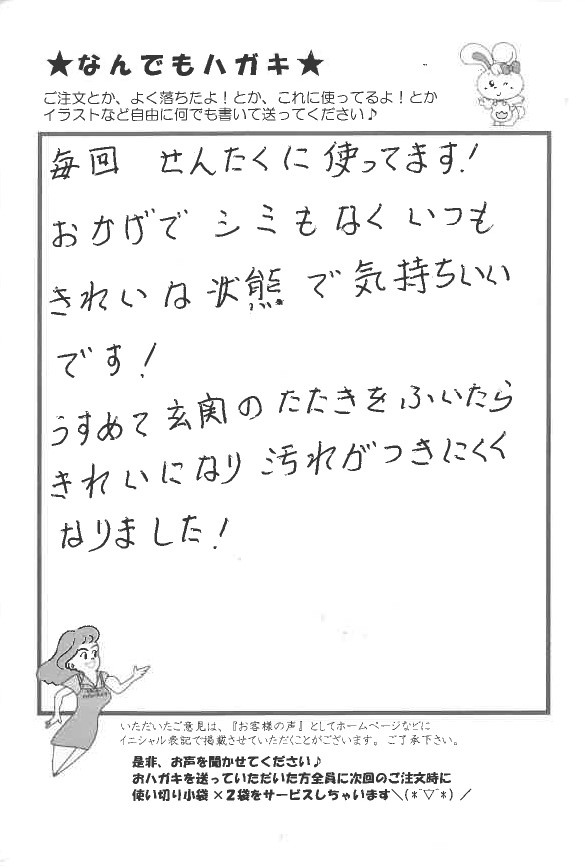 ★なんでもハガキ★
ご注文とか、よく落ちたよ！とか、これに使ってるよ！とか
イラストなど自由に何でも書いて送ってください♪
毎回 せんたくに使ってます!
おかげで シミもなく いつも
きれいな状態で気持ちいい
です!
うすめて玄関のたたきをふいたら
きれいになり汚れがつきにくく
なりました!
いただいたご意見は、『お客様の声』としてホームページなどに
イニシャル表記で掲載させていただくことがございます。ご了承下さい。
是非、お声を聞かせてください♪
おハガキを送っていただいた方全員に次回のご注文時に
使い切り小袋×2袋をサービスしちゃいます＼(*¯▽¯*)／